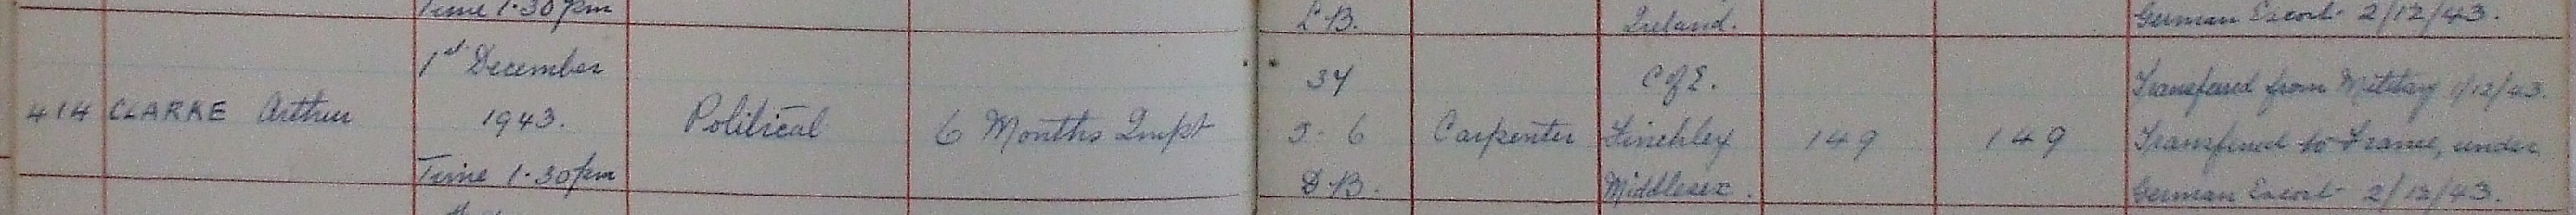 Time 1.30pm L.B. Ireland. German Escort 2/12/43.
1st December
1943.
Time 1.30pm
414 CLARKE Arthur
Political
6 Months Impt
34
5-6
D.B.
Carpenter
C of E.
Finchley
Middlesex.
149
149
Transfered from Military 1/12/43.
Transfered to France, under
German Escort 2/12/43.